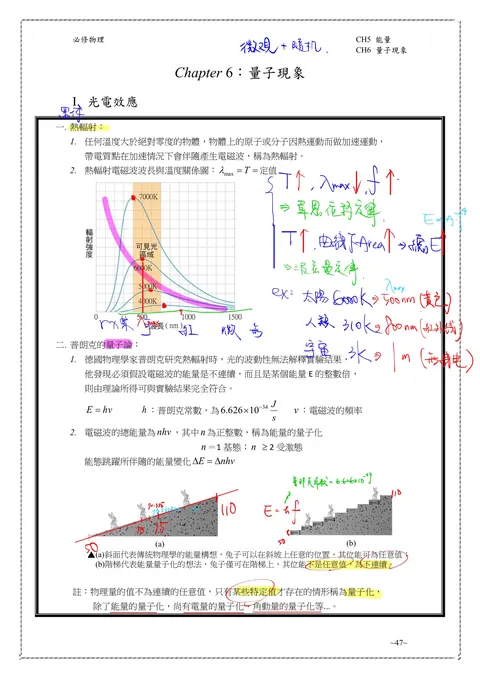 必修物理
微觀 + 隨机
CH5 能量
CH6 量子現象
Chapter 6：量子現象
I. 光電效應
黑体
一. 熱輻射：
1. 任何溫度大於絕對零度的物體，物體上的原子或分子因熱運動而做加速運動，
帶電質點在加速情況下會伴隨產生電磁波，稱為熱輻射。
2. 熱輻射電磁波波長與溫度關係圖：λmax × T = 定值
T↑, λmax↓, f↑
⇒ 韋恩位移定律
T↑, 曲线下Area↑ ⇒ 總E↑
輻射強度
7000K
可見光
區域
6000K
5000K
4000K
0 500 1000 1500
波長(nm)
紫 可 紅
λmax
ex: 太陽 6000K ⇒ 500nm
人類 310K ⇒
宇宙 3K ⇒ 1m
二. 普朗克的量子論：
1. 德國物理學家普朗克研究熱輻射時，光的波動性無法解釋實驗結果，
他發現必須假設電磁波的能量是不連續，而且是某個能量 E 的整數倍，
則由理論所得可與實驗結果完全符合。
E = hν h：普朗克常數，為 6.626×10⁻³⁴ J/s ν：電磁波的頻率
2. 電磁波的總能量為 nhν、其中 n 為正整數，稱為能量的量子化
n＝1 基態；n ≥2 受激態
能態跳躍所伴隨的能量變化 ΔE = Δnhν
110
50
75
E = hf
110
50
(a) (b)
▲(a)斜面代表傳統物理學的能量構想，兔子可以在斜坡上任意的位置，其位能可為任意值；
(b)階梯代表能量量子化的想法，兔子僅可在階梯上，其位能不是任意值，為不連續。
註：物理量的值不為連續的任意值，只有某些特定值才存在的情形稱為量子化，
除了能量的量子化，尚有電量的量子化、角動量的量子化等…。
~47~